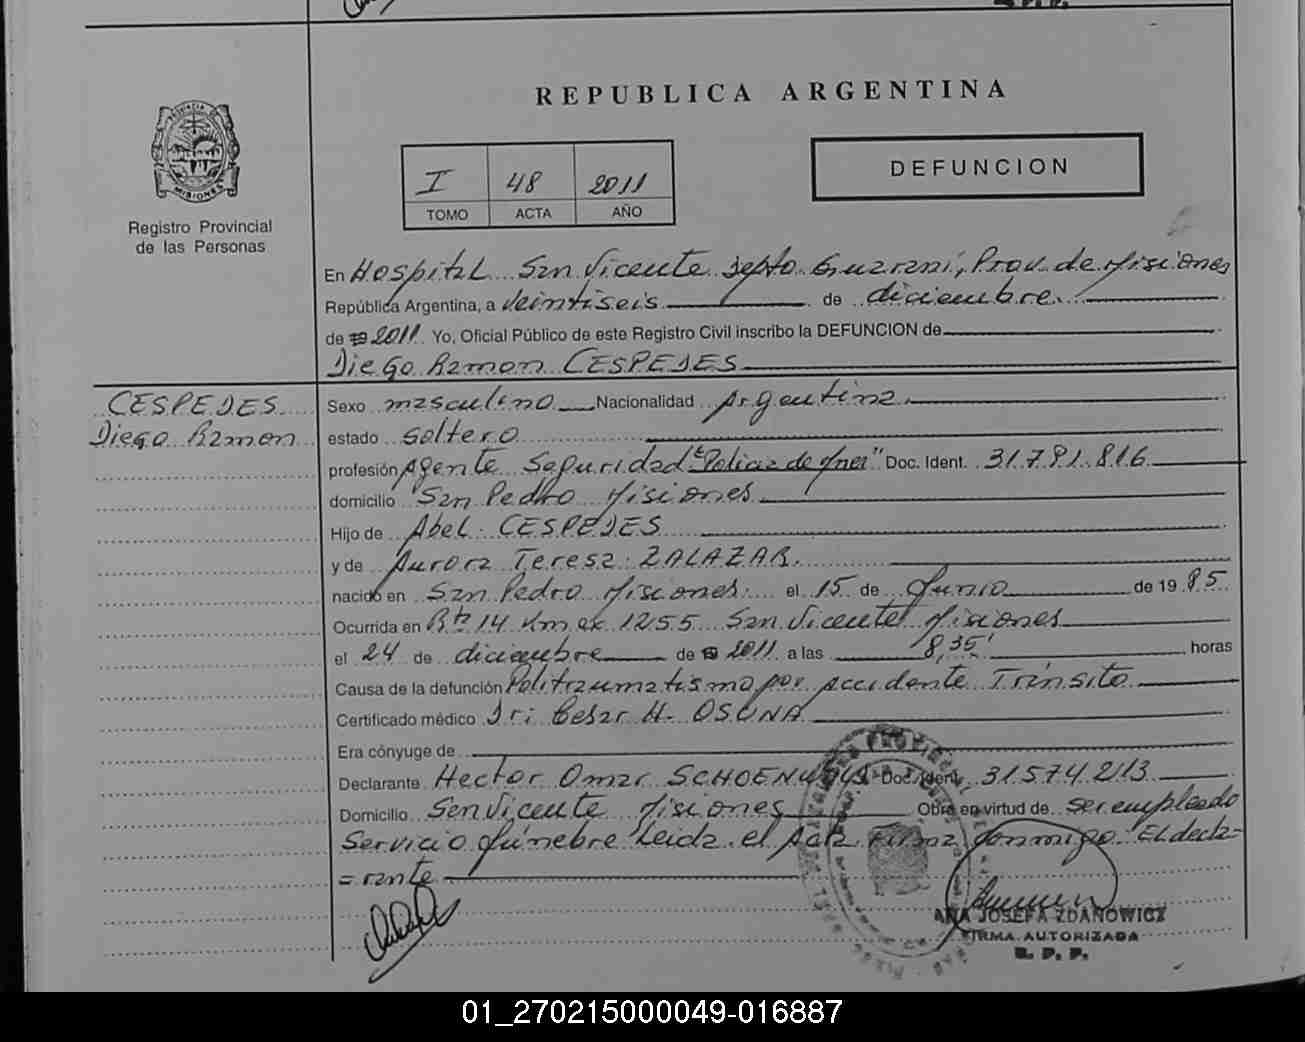 REPUBLICA ARGENTINA
PROVINCIA
MISIONES
Registro Provincial
de las Personas
I 48 2011
TOMO ACTA AÑO
DEFUNCION
En Hospital San Vicente Depto Guarani, Prov. de Misiones
República Argentina, a veintiseis de diciembre
de 2011 Yo, Oficial Público de este Registro Civil inscribo la DEFUNCION de
Diego Ramon CESPEDES
CESPEDES
Diego Ramon
Sexo masculino Nacionalidad Argentina
estado Soltero
profesión Agente Seguridad "Policia de Mnes" Doc. Ident. 31.781.816
domicilio San Pedro Misiones
Hijo de Abel CESPEDES
y de Aurora Teresa ZALAZAR.
nacido en San Pedro Misiones el 15 de Junio de 19 85
Ocurrida en Rta 14 Km ex 1255 San Vicente Misiones
el 24 de diciembre de 2011 a las 8,35' horas
Causa de la defunción Politraumatismo por accidente Tránsito
Certificado médico Dr: Cesar H. OSUNA
Era cónyuge de
Declarante Hector Omar Doc. Ident. 31.574.213
Domicilio San Vicente Misiones Obra en virtud de ser empleado
Servicio fúnebre Leida el Acta Firma conmigo El decla=
=rante
ANA JOSEFA ZDANOWICZ
FIRMA AUTORIZADA
R. P. P.
01_270215000049-016887